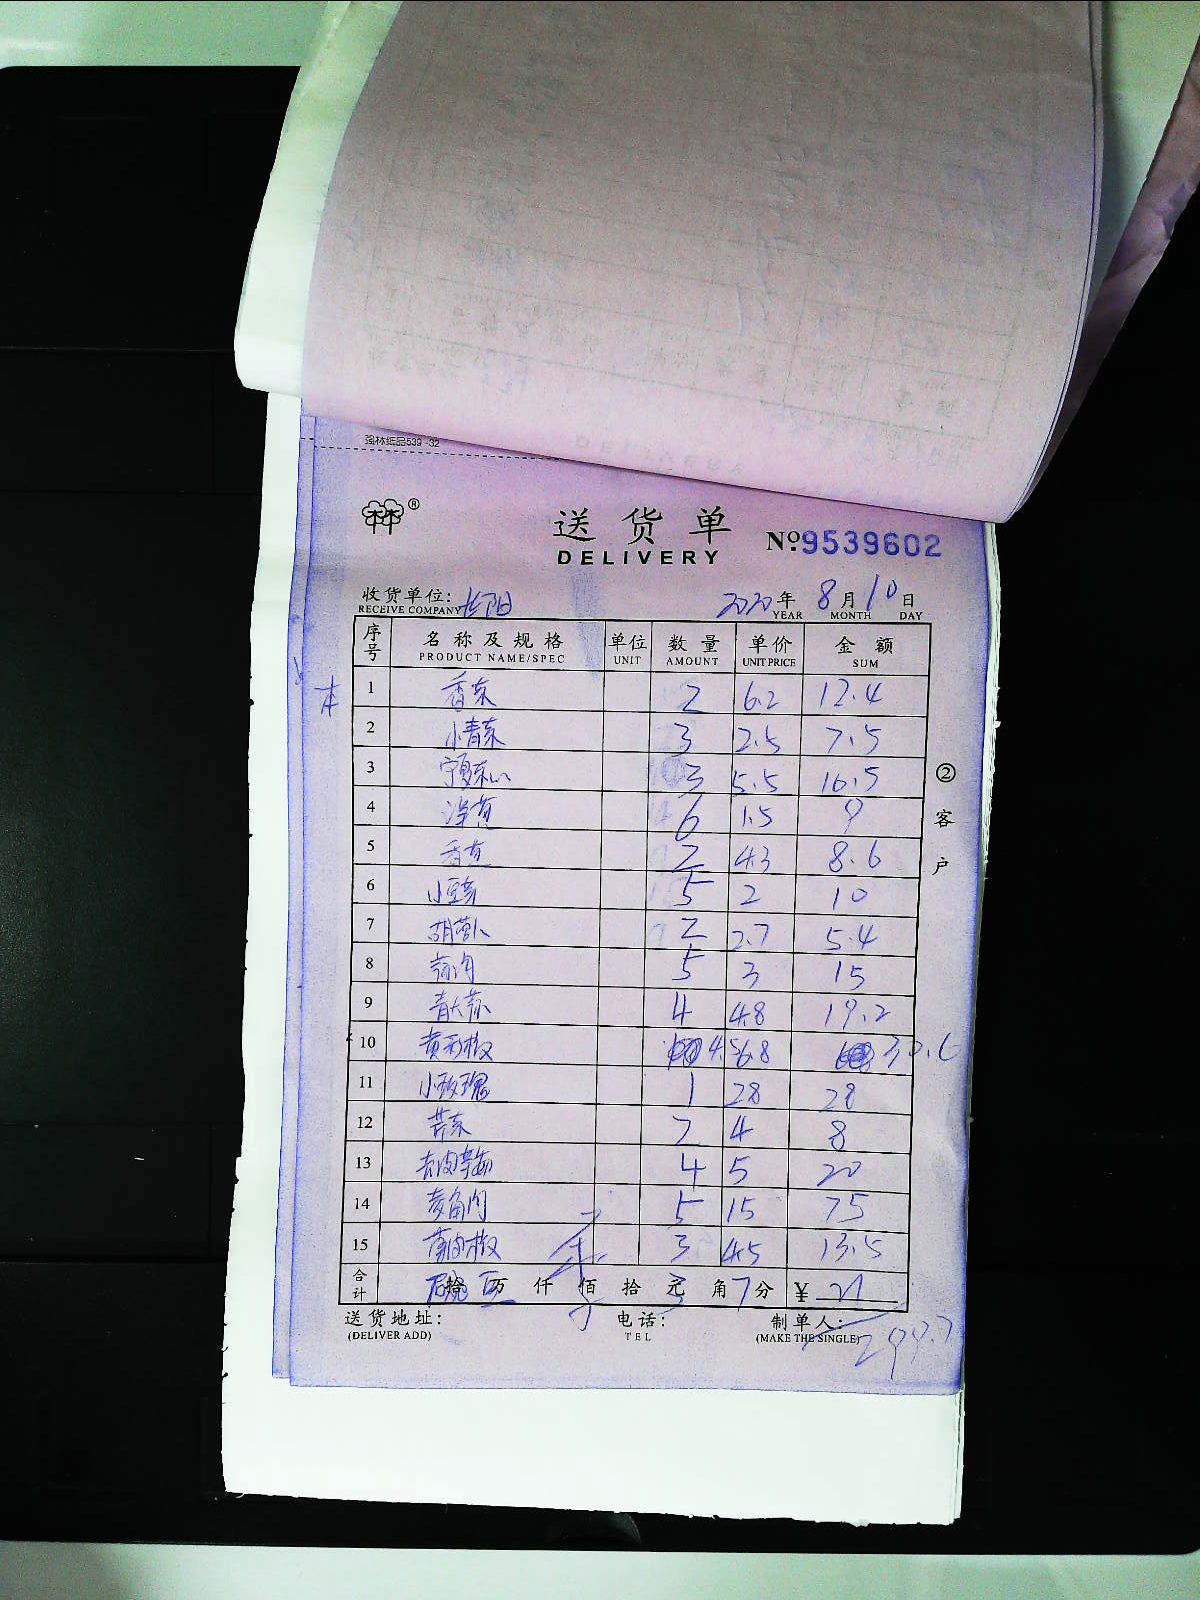 强林纸品539-32
送货单
DELIVERY
№9539602
收货单位: 长阳
RECEIVE COMPANY
2020年 8月 10日
YEAR MONTH DAY
序号 名称及规格 单位 数量 单价 金额
PRODUCT NAME/SPEC UNIT AMOUNT UNIT PRICE SUM
1 香菜 2 6.2 12.4
2 小青菜 3 2.5 7.5
3 宁夏菜心 3 5.5 16.5
4 洋葱 6 1.5 9
5 香芹 2 4.3 8.6
6 小豆芽 5 2 10
7 胡萝卜 2 2.7 5.4
8 蒜肉 5 3 15
9 青大蒜 4 4.8 19.2
10 黄彩椒 4.5 6.8 30.6
11 小玫瑰 1 28 28
12 2 4 8
13 4 5 20
14 5 15 75
15 3 4.5 13.5
合计 拾 万 仟 佰 拾 元 角 7 分 ¥ 21
送货地址: 电话: 制单人:
(DELIVER ADD) TEL (MAKE THE SINGLE)
299.7
②
客
户
本